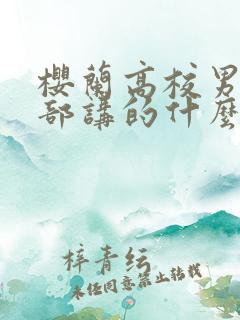 櫻蘭高校男
部講的什麼
梓青纭
未經同意禁止轉載